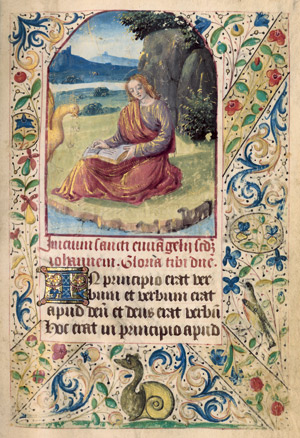 Inicium sancti euuāgelij scdȝ
iohannem. Gloria tibi dn̄e.
IN principio erat ver
bum et verbum erat
apud deū et deus erat verbū
Hoc erat in principio apud